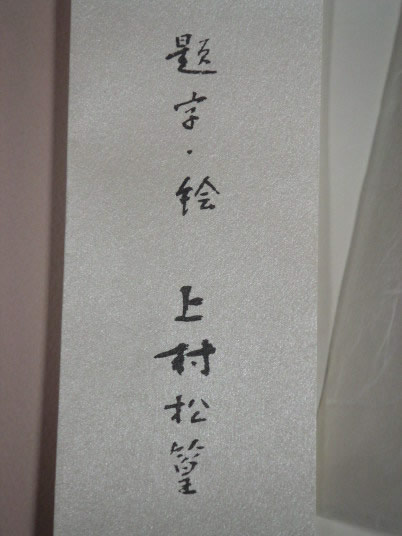 題字・絵　上村松篁